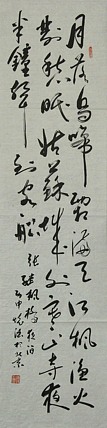 月落烏啼霜滿天江楓漁火
對愁眠姑蘇城外寒山寺夜
半鐘聲到客船
張繼楓橋夜泊
於北京